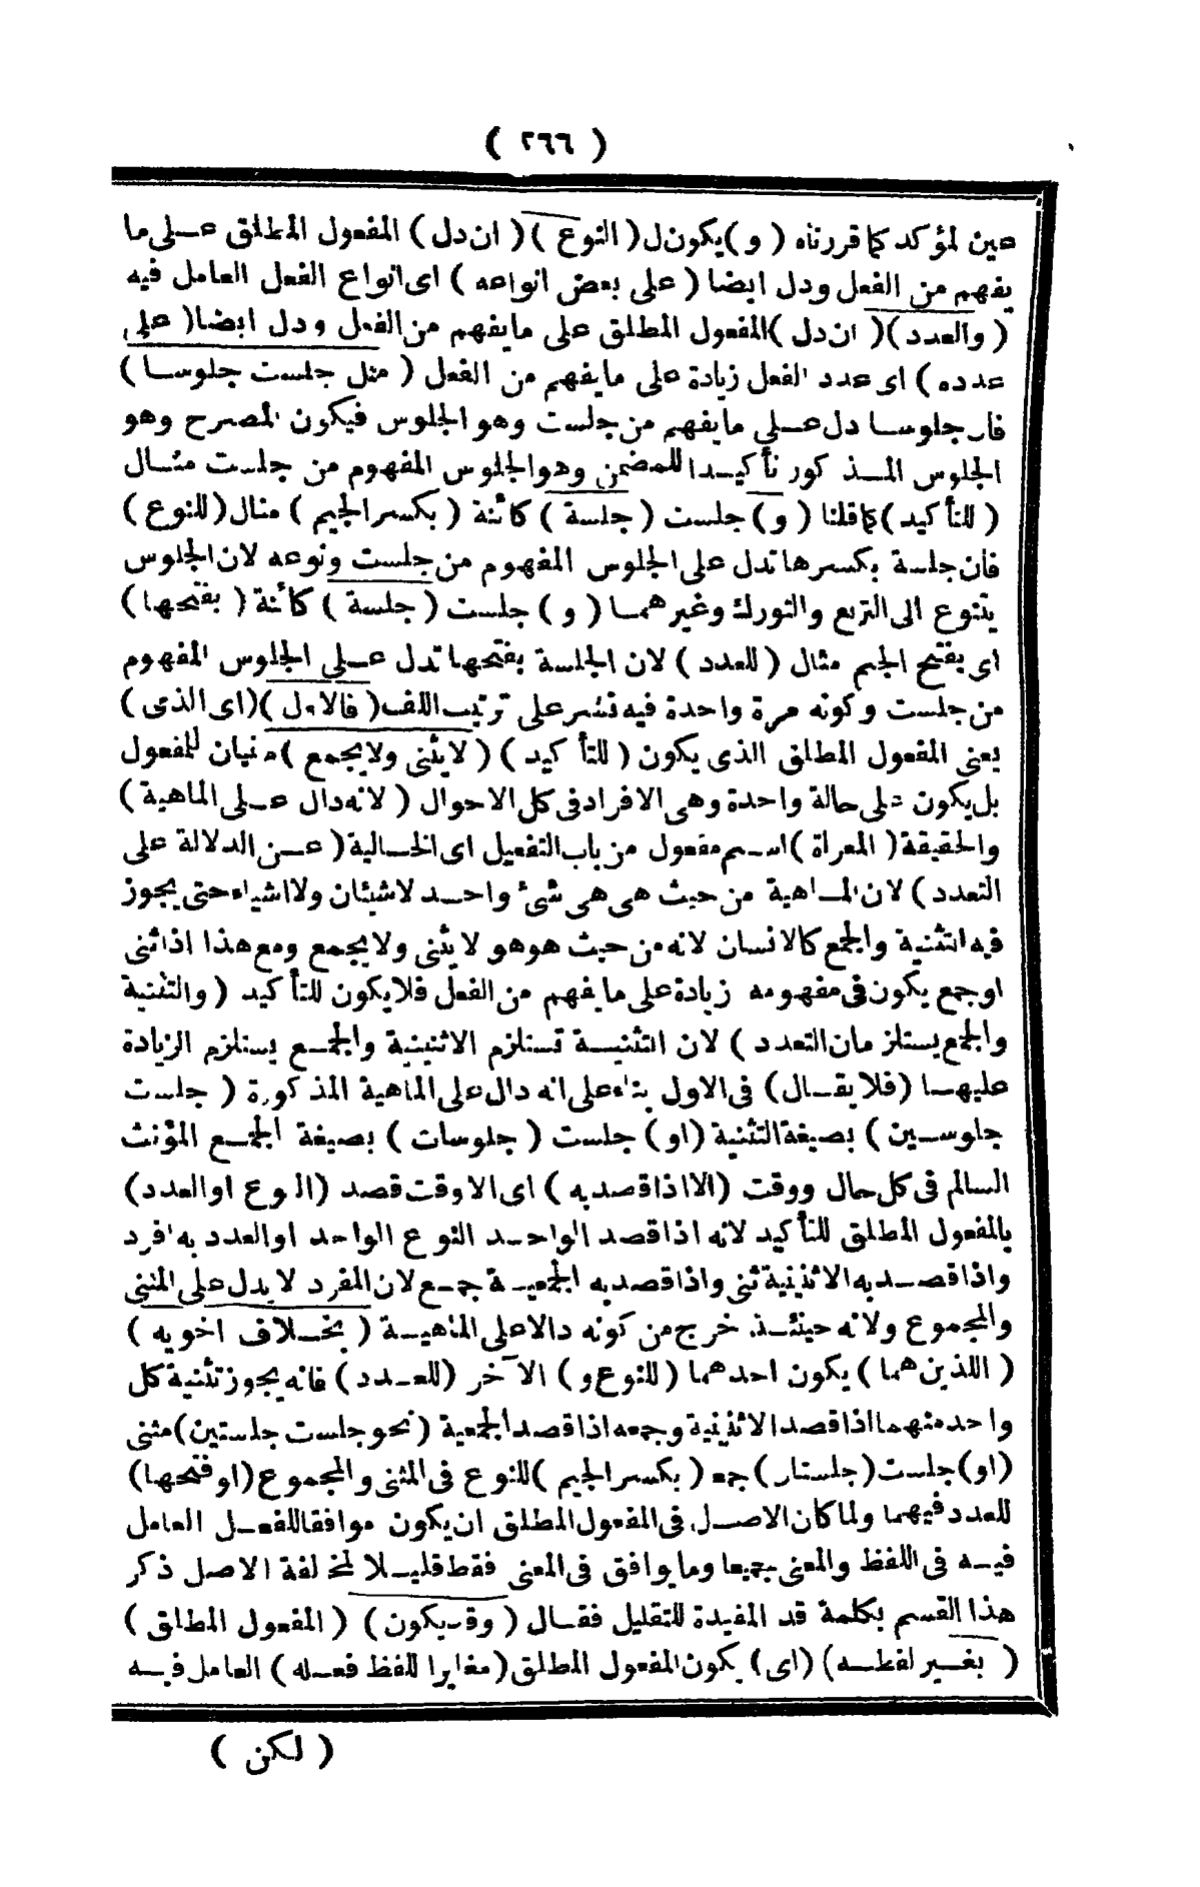 ( ٢٦٦ )
عين لمؤكد كما قررناه ( و ) يكون ل( النوع ) ( ان دل ) المفعول المطلق على ما
يفهم من الفعل ودل ايضا ( على بعض انواعه ) اى انواع الفعل العامل فيه
( والعدد ) ( ان دل ) المفعول المطلق على ما يفهم من الفعل ودل ايضا ( على
عدده ) اى عدد الفعل زيادة على ما يفهم من الفعل ( مثل جلست جلوسا )
فان جلوسا دل على ما يفهم من جلست وهو الجلوس فيكون المصرح وهو
الجلوس المذكور تأكيدا للمضمن وهو الجلوس المفهوم من جلست مثال
( للتأكيد ) كما قلنا ( و ) جلست ( جلسة ) كائنة ( بكسر الجيم ) مثال ( للنوع )
فان جلسة بكسرها تدل على الجلوس المفهوم من جلست ونوعه لان الجلوس
يتنوع الى التربع والتورك وغيرهما ( و ) جلست ( جلسة ) كائنة ( بفتحها )
اى بفتح الجيم مثال ( للعدد ) لان الجلسة بفتحها تدل على الجلوس المفهوم
من جلست وكونه مرة واحدة فيه نشر على ترتيب اللف ( فالاول ) ( اى الذى )
يعنى المفعول المطلق الذى يكون ( للتأكيد ) ( لا يثنى ولا يجمع ) مبنيان للمفعول
بل يكون على حالة واحدة وهى الافراد فى كل الاحوال ( لانه دال على الماهية )
والحقيقة ( المعراة ) اسم مفعول من باب التفعيل اى الخالية ( عن الدلالة على
التعدد ) لان الماهية من حيث هى هى شئ واحد لا شيئان ولا اشياء حتى يجوز
فيه التثنية والجمع كالانسان لانه من حيث هو هو لا يثنى ولا يجمع ومع هذا اذا ثنى
او جمع يكون فى مفهومه زيادة على ما يفهم من الفعل فلا يكون للتأكيد ( والتثنية
والجمع يستلزمان التعدد ) لان التثنية تستلزم الاثنينية والجمع يستلزم الزيادة
عليهما ( فلا يقال ) فى الاول بناء على انه دال على الماهية المذكورة ( جلست
جلوسين ) بصيغة التثنية ( او ) جلست ( جلوسات ) بصيغة الجمع المؤنث
السالم فى كل حال ووقت ( الا اذا قصد به ) اى الا وقت قصد ( النوع او العدد )
بالمفعول المطلق للتأكيد لانه اذا قصد الواحد النوع الواحد او العدد به افرد
واذا قصد به الاثنينية ثنى واذا قصد به الجمعية جمع لان المفرد لا يدل على المثنى
والمجموع ولانه حينئذ خرج من كونه دالا على الماهية ( بخلاف اخويه )
( اللذين هما ) يكون احدهما ( للنوع و ) الآخر ( للعدد ) فانه يجوز تثنية كل
واحد منهما اذا قصد الاثنينية وجمعه اذا قصد الجمعية ( نحو جلست جلستين ) مثنى
( او ) جلست ( جلسات ) جمع ( بكسر الجيم ) للنوع فى المثنى والمجموع ( او فتحها )
للعدد فيهما ولما كان الاصل فى المفعول المطلق ان يكون موافقا للفعل العامل
فيه فى اللفظ والمعنى جميعا وما يوافق فى المعنى فقط قليلا لمخالفة الاصل ذكر
هذا القسم بكلمة قد المفيدة للتقليل فقال ( وقد يكون ) ( المفعول المطلق )
( بغير لفظه ) ( اى ) يكون المفعول المطلق ( مغايرا للفظ فعله ) العامل فيه
( لكن )